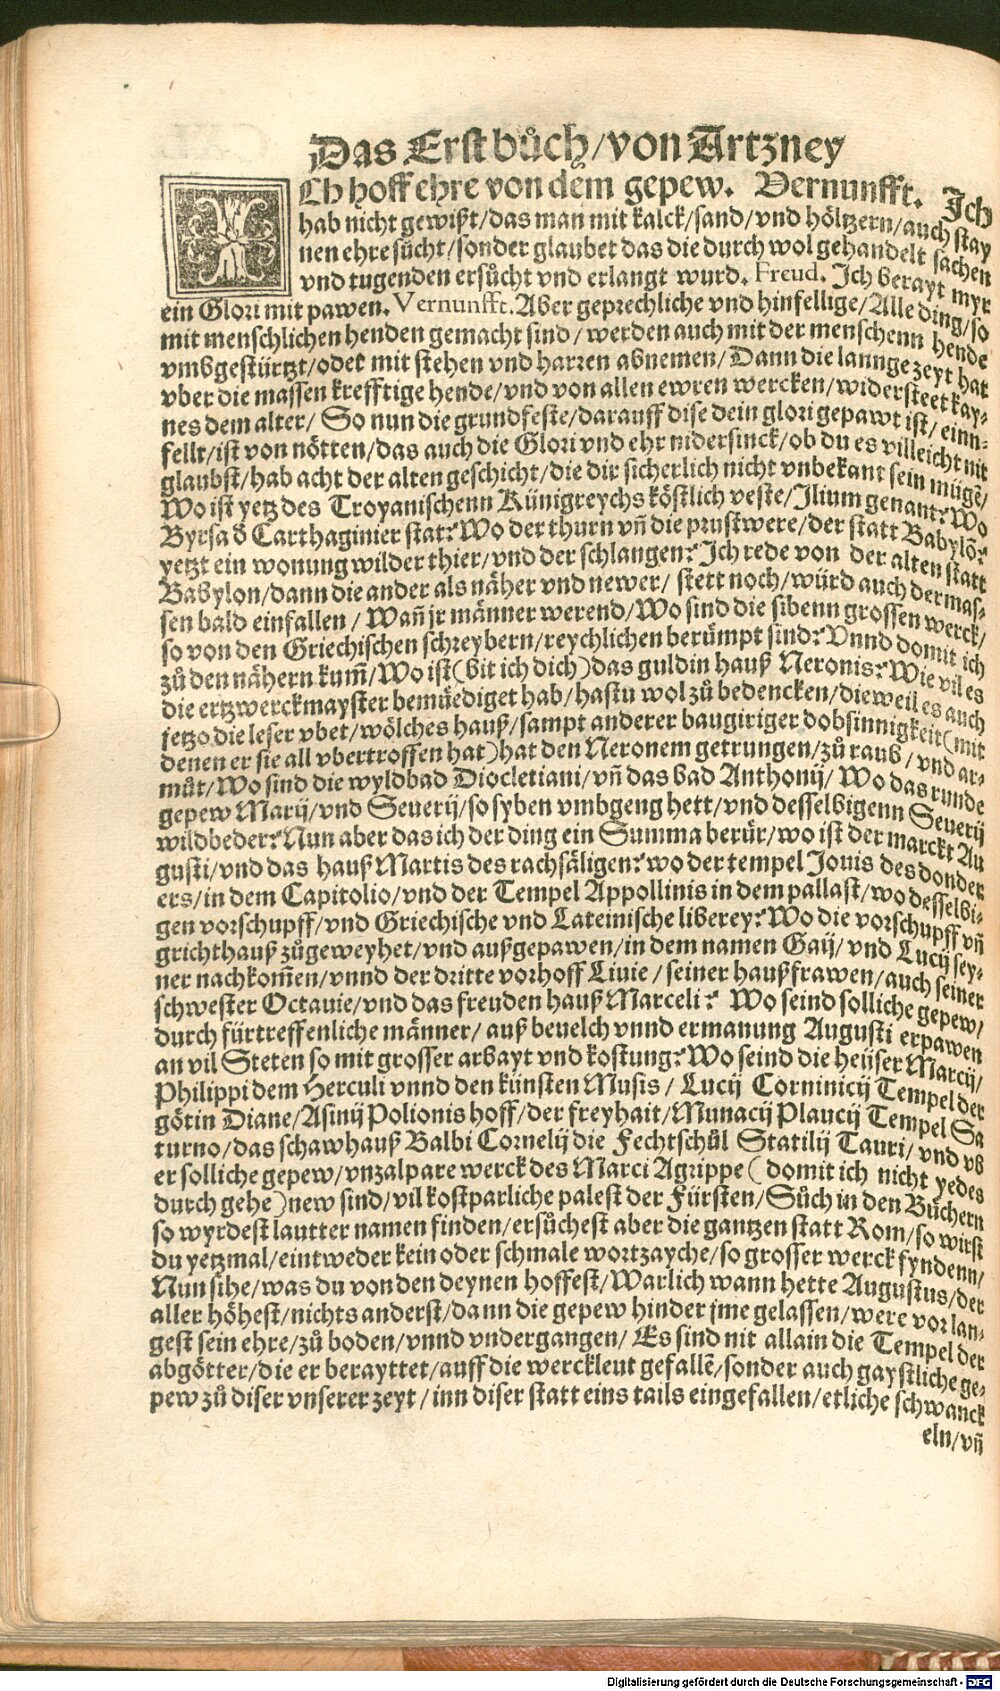 Das Erst bůch/von Artzney
ICh hoff ehre von dem gepew. Vernunfft. Ich
hab nicht gewißt/das man mit kalck/sand/vnd höltzern/auch stay
nen ehre sůcht/sonder glaubet das die durch wol gehandelt sachen
vnd tugenden ersůcht vnd erlangt wurd. Freud. Ich berayt myr
ein Glori mit pawen. Vernunfft. Aber geprechliche vnd hinfellige/Alle ding/so
mit menschlichen henden gemacht sind/werden auch mit der menschenn hende
vmbgestürtzt/oder mit stehen vnd harren abnemen/Dann die lannge zeyt hat
vber die massen krefftige hende/vnd von allen ewren wercken/widersteet kay-
nes dem alter/ So nun die grundfeste/darauff dise dein glori gepawt ist/einn-
fellt/ist von nötten/das auch die Glori vnd ehr nidersinck/ob du es villeicht nit
glaubst/hab acht der alten geschicht/die dir sicherlich nicht vnbekant sein mügē/
Wo ist yetz des Troyanischenn Künigreychs köstlich veste/Ilium genant? Wo
Byrsa d̄ Carthaginier stat? Wo der thurn vñ die prustwere/der statt Babylō?
yetzt ein wonung wilder thier/vnd der schlangen? Ich rede von der alten statt
Babylon/dann die ander als näher vnd newer/ stett noch/würd auch der mas-
sen bald einfallen/Wañ jr männer werend/Wo sind die sibenn grossen werck/
so von den Griechischen schreybern/reychlichen berümpt sind? Vnnd domit ich
zů den nähern kum̄/Wo ist (bit ich dich) das guldin hauß Neronis? Wie vil es
die ertzwerckmayster bemüediget hab/hastu wol zů bedencken/dieweil es auch
jetzo die leser vbet/wölches hauß/sampt anderer baugiriger dobsinnigkeit (mit
denen er sie all vbertroffen hat) hat den Neronem getrungen/zů raub/vnd ar-
můt/Wo sind die wyldbad Diocletiani/vñ das bad Anthonij/Wo das runde
gepew Marij/vnd Seuerij/so syben vmbgeng hett/vnd desselbigenn Seuerij
wildbeder? Nun aber das ich der ding ein Summa berür/wo ist der marckt Au
gusti/vnd das hauß Martis des rachsäligen? wo der tempel Jouis des donder
ers/in dem Capitolio/vnd der Tempel Appollinis in dem pallast/wo desselbi-
gen vorschupff/vnd Griechische vnd Lateinische liberey? Wo die vorschupff vñ
grichthauß zůgeweyhet/vnd außgepawen/in dem namen Gaij/vnd Lucij sey-
ner nachkom̄en/vnnd der dritte vorhoff Liuie/seiner haußfrawen/auch seiner
schwester Octauie/vnd das freuden hauß Marceli? Wo seind solliche gepew/
durch fürtreffenliche männer/auß beuelch vnnd ermanung Augusti erpawen
an vil Steten so mit grosser arbayt vnd kostung? Wo seind die heüser Marcij/
Philippi dem Herculi vnnd den künsten Musis/Lucij Corninicij Tempel der
götin Diane/Asinij Polionis hoff/der freyhait/Munacij Plaucij Tempel Sa
turno/das schawhauß Balbi Cornelij die Fechtschůl Statilij Tauri/vnd vb
er solliche gepew/vnzalpare werck des Marci Agrippe (domit ich nicht yedes
durch gehe) new sind/vil kostparliche palest der Fürsten/Sůch in den Büchern
so wyrdest lautter namen finden/ersůchest aber die gantzen statt Rom/so wirst
du yetzmal/eintweder kein oder schmale wortzayche/so grosser werck fyndenn/
Nun sihe/was du von den deynen hoffest/Warlich wann hette Augustus/der
aller höhest/nichts anderst/dann die gepew hinder jme gelassen/were vor lan-
gest sein ehre/zů boden/vnnd vndergangen/Es sind nit allain die Tempel der
abgötter/die er berayttet/auff die werckleut gefallē/sonder auch gaystliche ge-
pew zů diser vnserer zeyt/inn diser statt eins tails eingefallen/etliche schwanck
eln/vñ
Digitalisierung gefördert durch die Deutsche Forschungsgemeinschaft - DFG